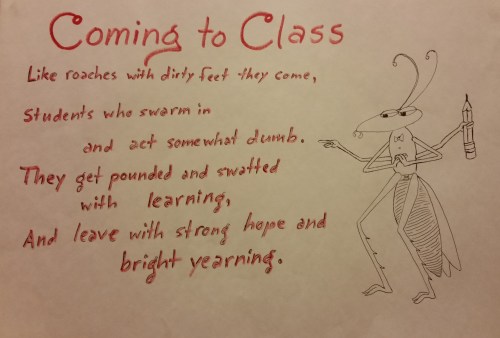 Coming to Class
Like roaches with dirty feet they come,
Students who swarm in
and act somewhat dumb.
They get pounded and swatted
with learning,
And leave with strong hope and
bright yearning.